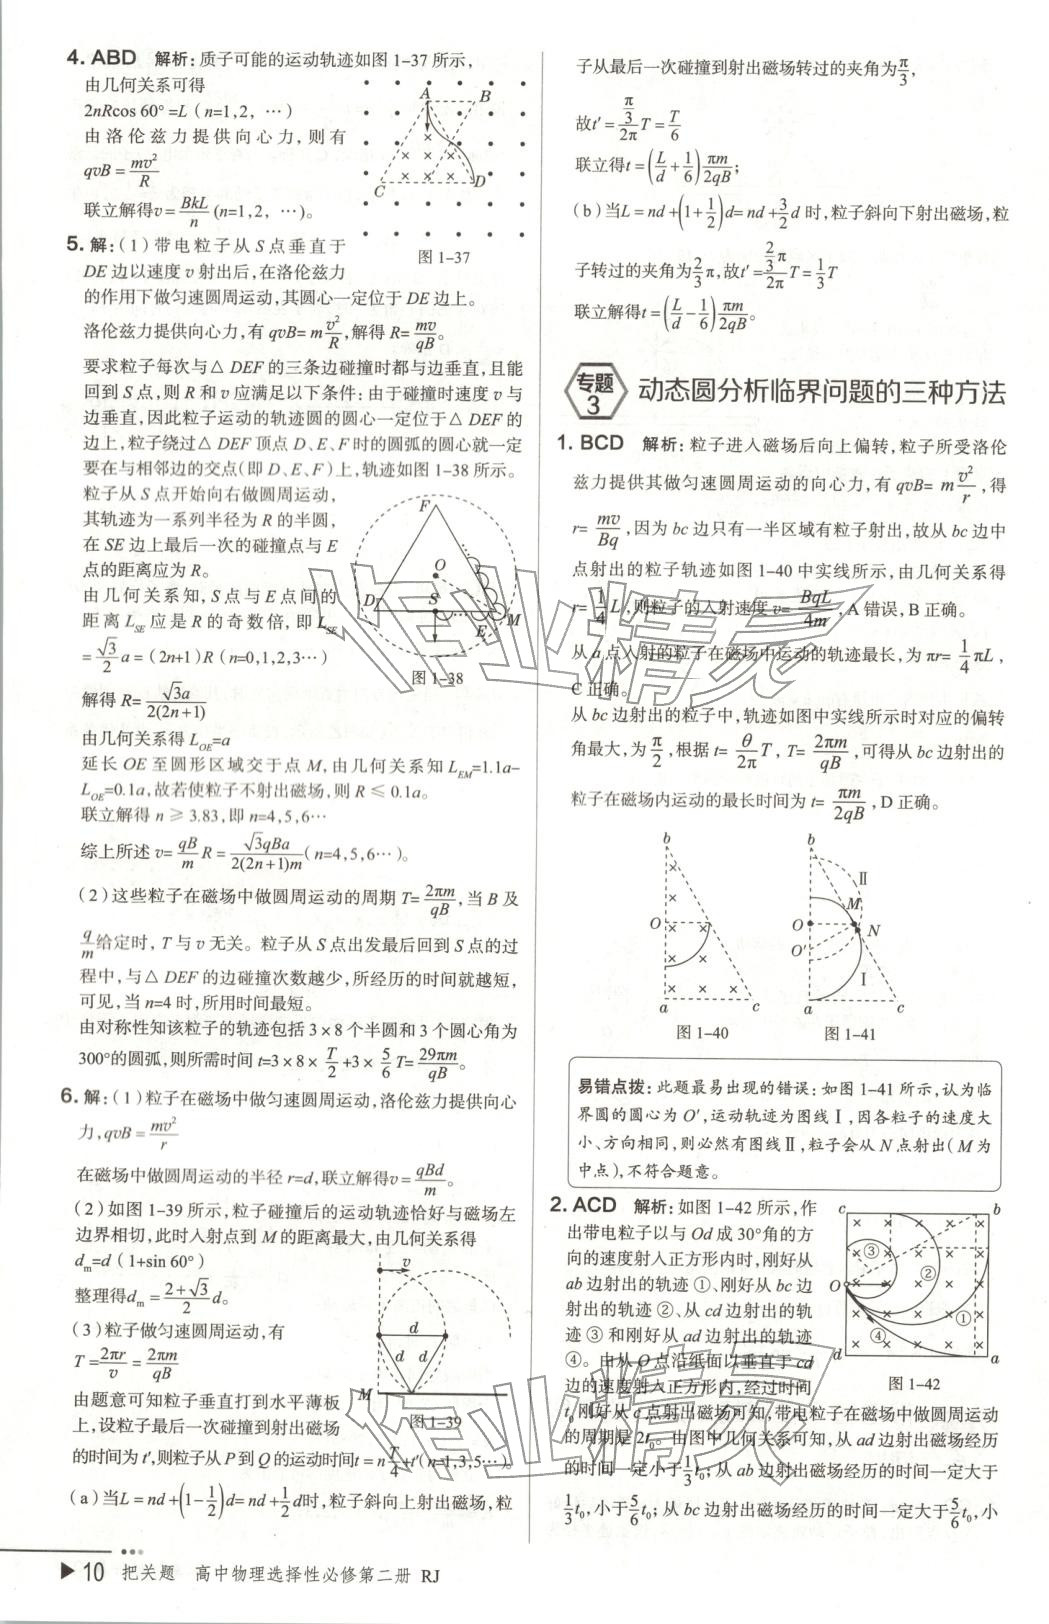 4. ABD 解析:质子可能的运动轨迹如图1-37所示,
由几何关系可得
2nRcos 60°=L(n=1,2,…)
由洛伦兹力提供向心力,则有
qvB=mv²/R
联立解得v=BkL/n(n=1,2,…)。
A B C D
图1-37
5. 解:(1)带电粒子从S点垂直于
DE边以速度v射出后,在洛伦兹力
的作用下做匀速圆周运动,其圆心一定位于DE边上。
洛伦兹力提供向心力,有qvB=mv²/R,解得R=mv/qB。
要求粒子每次与△DEF的三条边碰撞时都与边垂直,且能
回到S点,则R和v应满足以下条件:由于碰撞时速度v与
边垂直,因此粒子运动的轨迹圆的圆心一定位于△DEF的
边上,粒子绕过△DEF顶点D、E、F时的圆弧的圆心就一定
要在与相邻边的交点(即D、E、F)上,轨迹如图1-38所示。
粒子从S点开始向右做圆周运动,
其轨迹为一系列半径为R的半圆,
在SE边上最后一次的碰撞点与E
点的距离应为R。
由几何关系知,S点与E点间的
距离L_SE应是R的奇数倍,即L_SE
=(√3/2)a=(2n+1)R(n=0,1,2,3…)
F O D S E M
图1-38
解得R=√3a/2(2n+1)
由几何关系得L_OE=a
延长OE至圆形区域交于点M,由几何关系知L_EM=1.1a-
L_OE=0.1a,故若使粒子不射出磁场,则R≤0.1a。
联立解得n≥3.83,即n=4,5,6…
综上所述v=(qB/m)R=√3qBa/2(2n+1)m(n=4,5,6…)。
(2)这些粒子在磁场中做圆周运动的周期T=2πm/qB,当B及
q/m给定时,T与v无关。粒子从S点出发最后回到S点的过
程中,与△DEF的边碰撞次数越少,所经历的时间就越短,
可见,当n=4时,所用时间最短。
由对称性知该粒子的轨迹包括3×8个半圆和3个圆心角为
300°的圆弧,则所需时间t=3×8×T/2+3×(5/6)T=29πm/qB。
6. 解:(1)粒子在磁场中做匀速圆周运动,洛伦兹力提供向心
力,qvB=mv²/r
在磁场中做圆周运动的半径r=d,联立解得v=qBd/m。
(2)如图1-39所示,粒子碰撞后的运动轨迹恰好与磁场左
边界相切,此时入射点到M的距离最大,由几何关系得
d_m=d(1+sin 60°)
整理得d_m=((2+√3)/2)d。
(3)粒子做匀速圆周运动,有
T=2πr/v=2πm/qB
v d d d M
图1-39
由题意可知粒子垂直打到水平薄板
上,设粒子最后一次碰撞到射出磁场
的时间为t′,则粒子从P到Q的运动时间t=n(T/4)+t′(n=1,3,5…)。
(a)当L=nd+(1-1/2)d=nd+(1/2)d时,粒子斜向上射出磁场,粒
▶ 10 把关题 高中物理选择性必修第二册 RJ
子从最后一次碰撞到射出磁场转过的夹角为π/3,
故t′=((π/3)/2π)T=T/6
联立得t=(L/d+1/6)πm/2qB;
(b)当L=nd+(1+1/2)d=nd+(3/2)d时,粒子斜向下射出磁场,粒
子转过的夹角为(2/3)π,故t′=((2/3)π/2π)T=(1/3)T
联立解得t=(L/d-1/6)πm/2qB。
专题3 动态圆分析临界问题的三种方法
1. BCD 解析:粒子进入磁场后向上偏转,粒子所受洛伦
兹力提供其做匀速圆周运动的向心力,有qvB=mv²/r,得
r=mv/Bq,因为bc边只有一半区域有粒子射出,故从bc边中
点射出的粒子轨迹如图1-40中实线所示,由几何关系得
r=(1/4)L,则粒子的入射速度v=BqL/4m,A错误,B正确。
从a点入射的粒子在磁场中运动的轨迹最长,为πr=(1/4)πL,
C正确。
从bc边射出的粒子中,轨迹如图中实线所示时对应的偏转
角最大,为π/2,根据t=(θ/2π)T,T=2πm/qB,可得从bc边射出的
粒子在磁场内运动的最长时间为t=πm/2qB,D正确。
b O a c
图1-40
b Ⅱ M O N O′ Ⅰ a c
图1-41
易错点拨:此题最易出现的错误:如图1-41所示,认为临
界圆的圆心为O′,运动轨迹为图线Ⅰ,因各粒子的速度大
小、方向相同,则必然有图线Ⅱ,粒子会从N点射出(M为
中点),不符合题意。
2. ACD 解析:如图1-42所示,作
出带电粒子以与Od成30°角的方
向的速度射入正方形内时,刚好从
ab边射出的轨迹①、刚好从bc边
射出的轨迹②、从cd边射出的轨
迹③和刚好从ad边射出的轨迹
④。由从O点沿纸面以垂直于cd
边的速度射入正方形内,经过时间
c b ③ ② O ① ④ d a
图1-42
t₀刚好从c点射出磁场可知,带电粒子在磁场中做圆周运动
的周期是2t₀。由图中几何关系可知,从ad边射出磁场经历
的时间一定小于(1/3)t₀;从ab边射出磁场经历的时间一定大于
(1/3)t₀,小于(5/6)t₀;从bc边射出磁场经历的时间一定大于(5/6)t₀,小
作业精灵
作业精灵